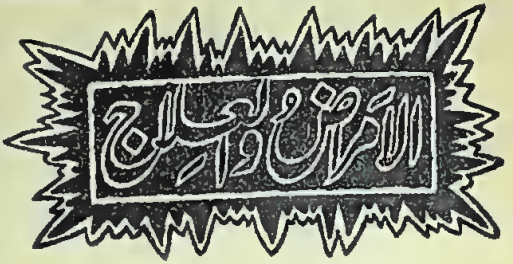 الامراض والعلاج